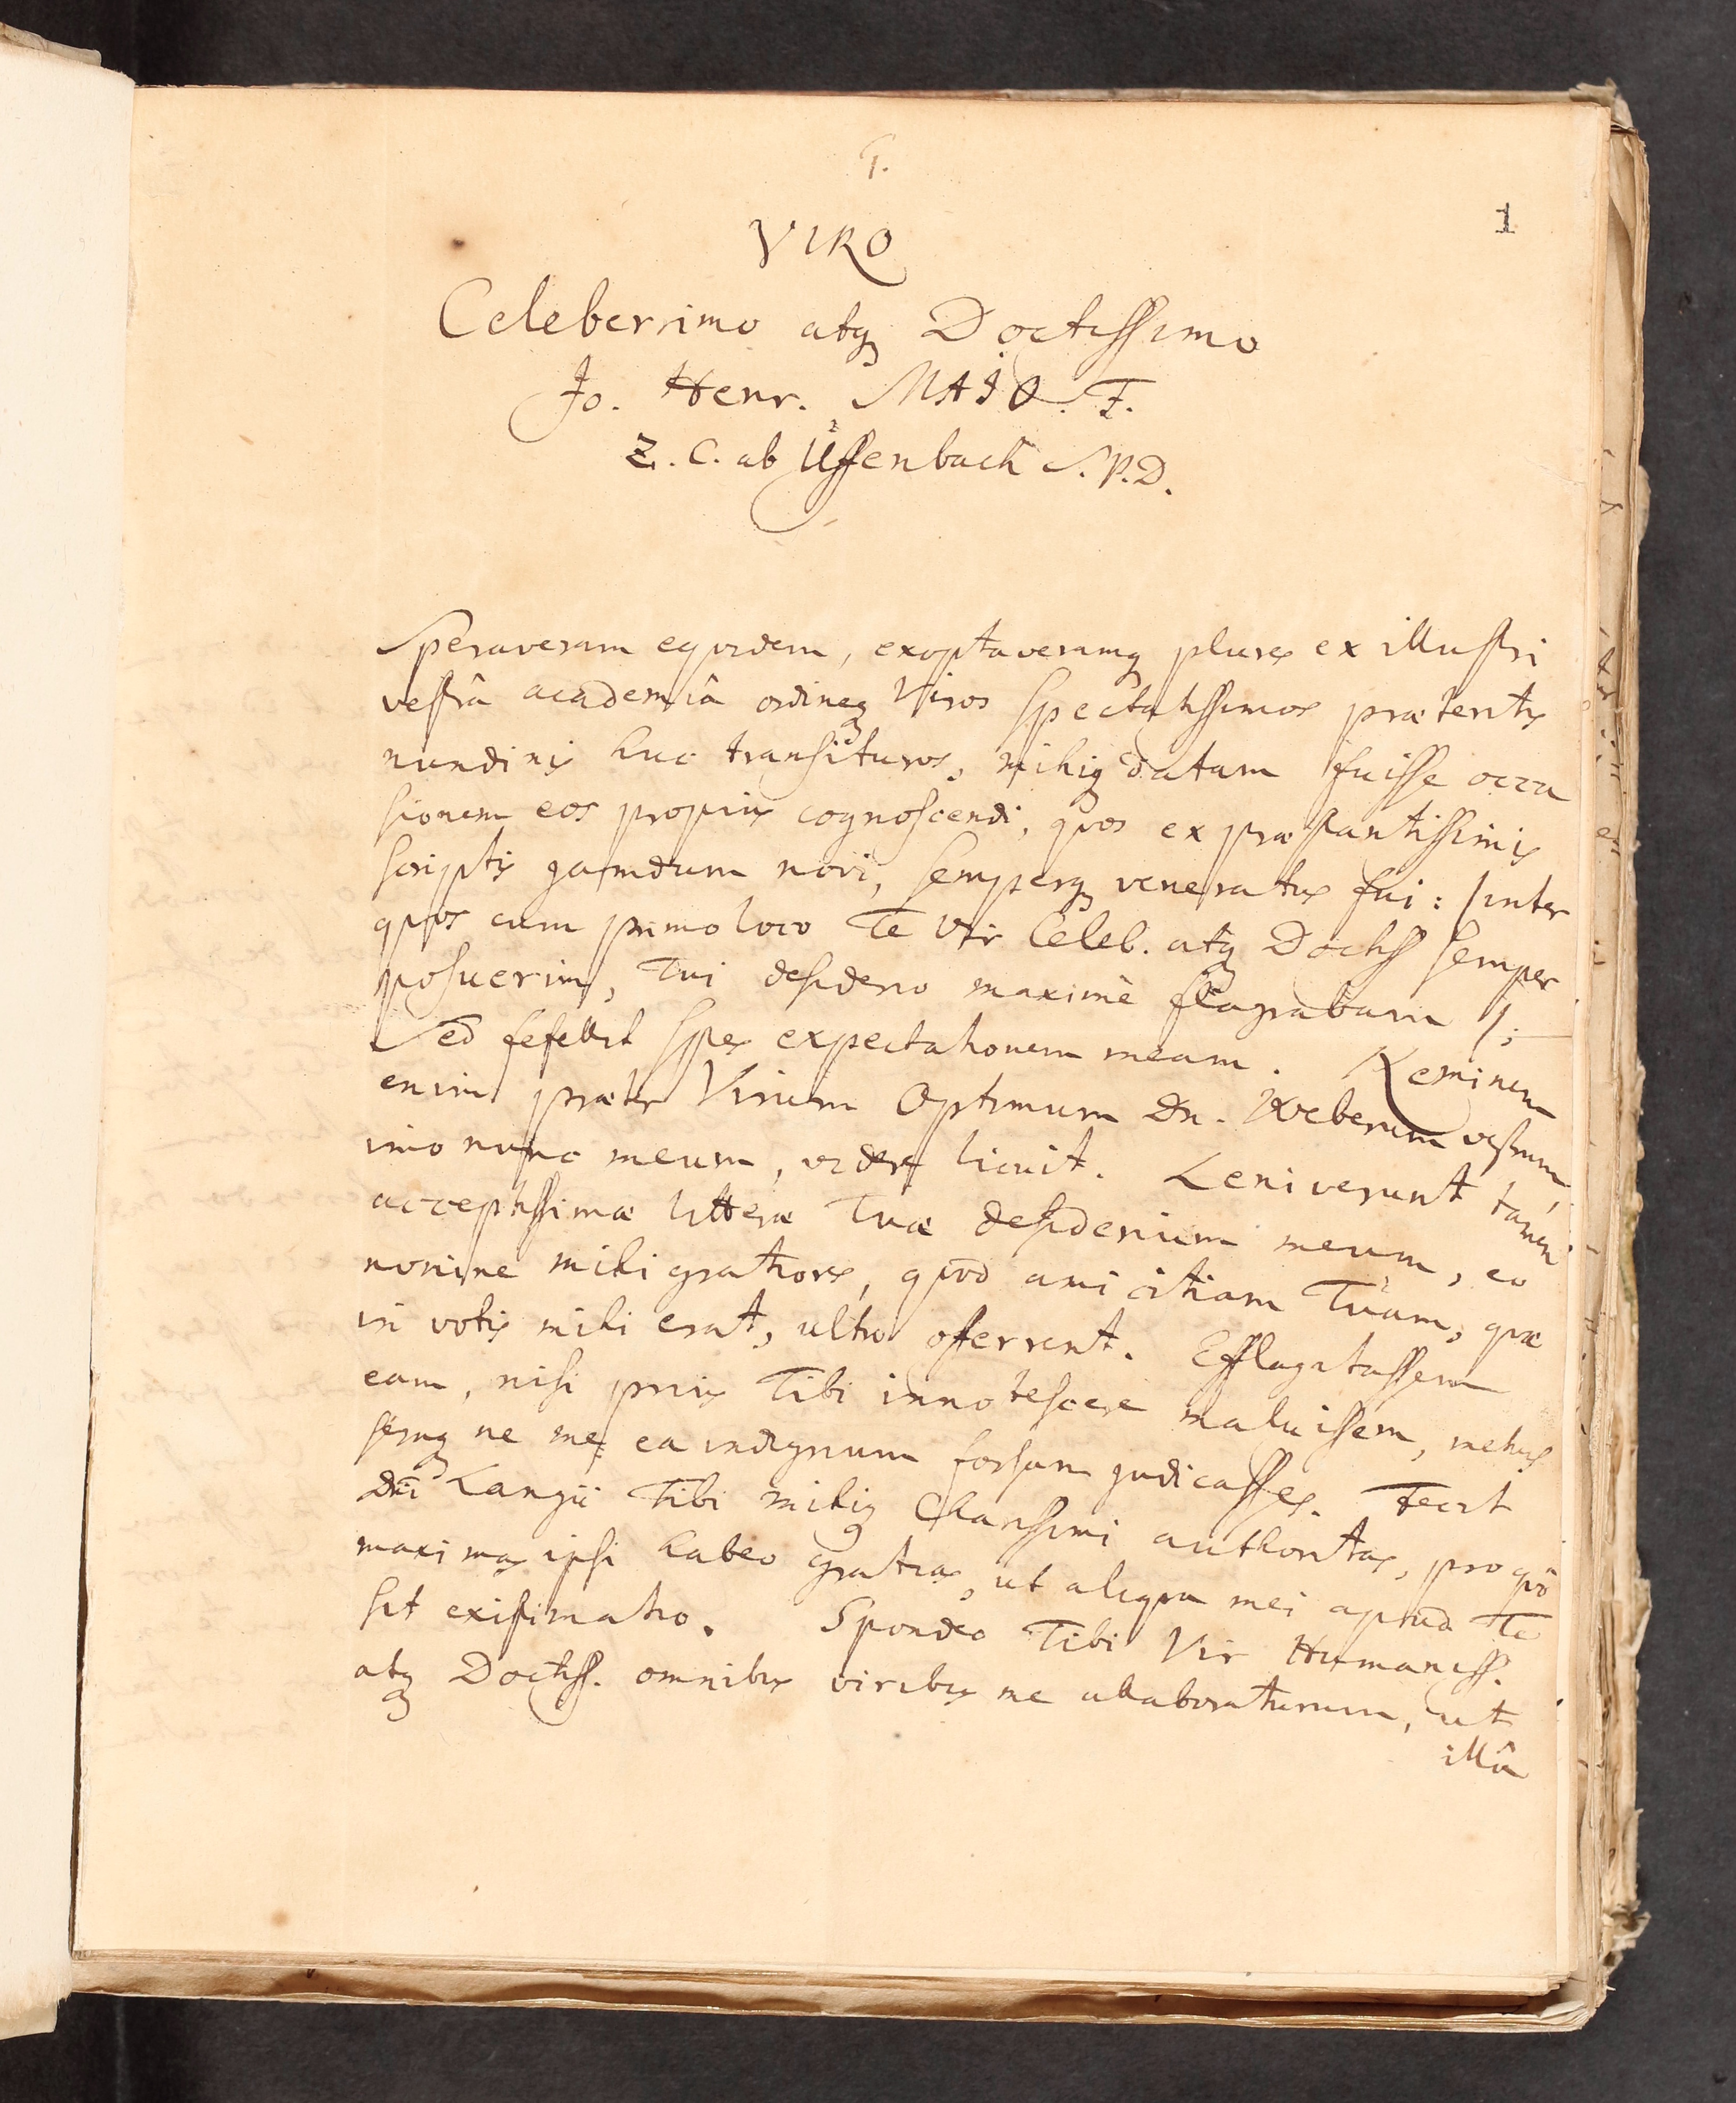 1.
1
VIRO
Celeberrimo atq Doctissimo
Jo. Henr. MAJO. F.
Z. C. ab Uffenbach S. P. D.
Speraveram equidem, exoptaveramq plures ex illustri
vestrâ academiâ ordineq Viros spectatissimos præteritis
nundinis huc transituros, mihiq datam fuisse occa
sionem eos propius cognoscendi, quos ex præstantissimis
scriptis jamdum novi, semperq veneratus fui: /inter
quos cum primo loco Te Vir Celeb. atq Doctiss semper
posuerim, Tui desiderio maximè flagrabam /;
Sed fefellit spes expectationem meam. Neminem
enim præter Virum Optimum Dn. Weberum vestrum,
imo nunc meum, videre licuit. Leniverunt tamen
acceptissimæ litteræ Tuæ desiderium meum, eo
nomine mihi gratiores, quod amicitiam Tuam, quæ
in votis mihi erat, ultro offerrent. Efflagitassem
eam, nisi prius Tibi innotescere maluissem, metuis
semq ne me ea indignum forsan judicasses. Fecit
Dni Langii Tibi mihiq Clarissimi authoritas, pro quo
maximas ipsi habeo gratias, ut aliqua mei apud Te
sit existimatio. Spondeo Tibi Vir Humaniss.
atq Doctiss. omnibus viribus me allaboraturum, ut
illâ